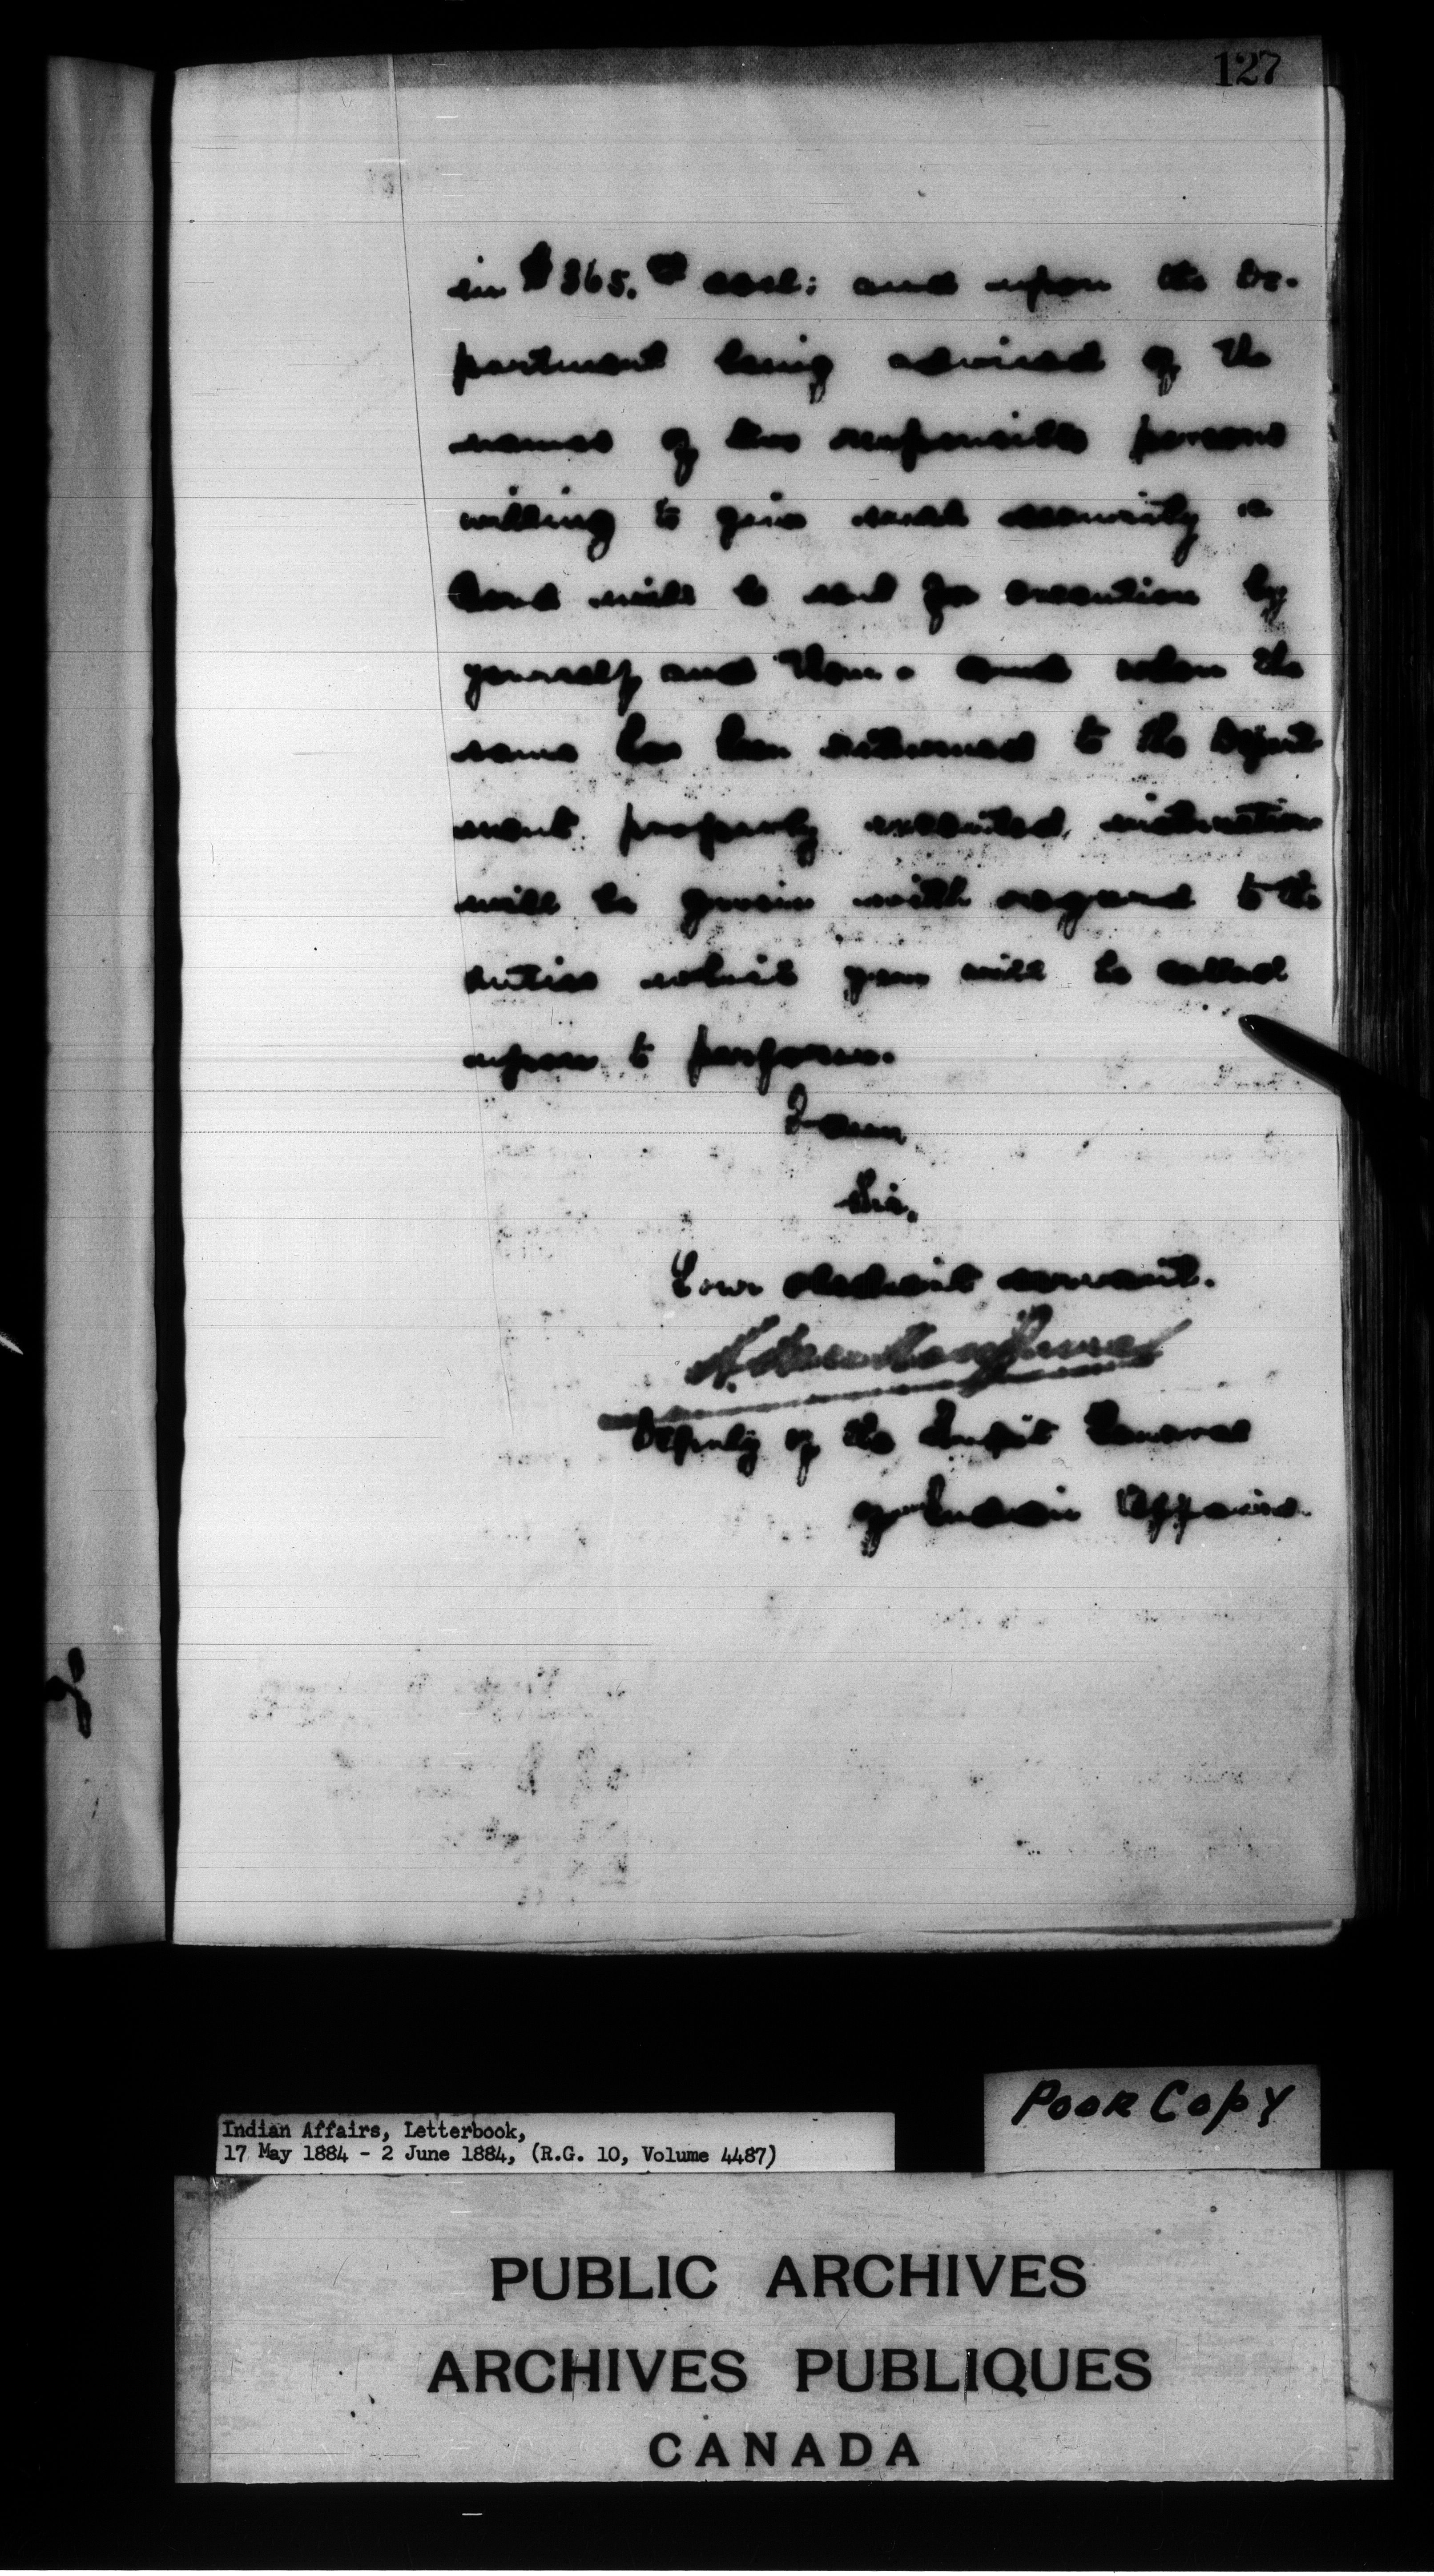 127
in $365.00 each: and upon the De-
partment being advised of the
names of two responsible persons
willing to give such security a
bond will be sent for execution by
yourself and them. and when the
same has been returned to the Depart
ment properly executed, instructions
will be given with regard to the
duties which you will be called
upon to perform.
I am
Sir,
Your obedient servant.
L. Vankoughnet
Deputy of the Supt General
of Indian Affairs.
Poor Copy
Indian Affairs, Letterbook,
17 May 1884 - 2 June 1884, (R.G. 10, Volume 4487)
PUBLIC ARCHIVES
ARCHIVES PUBLIQUES
CANADA